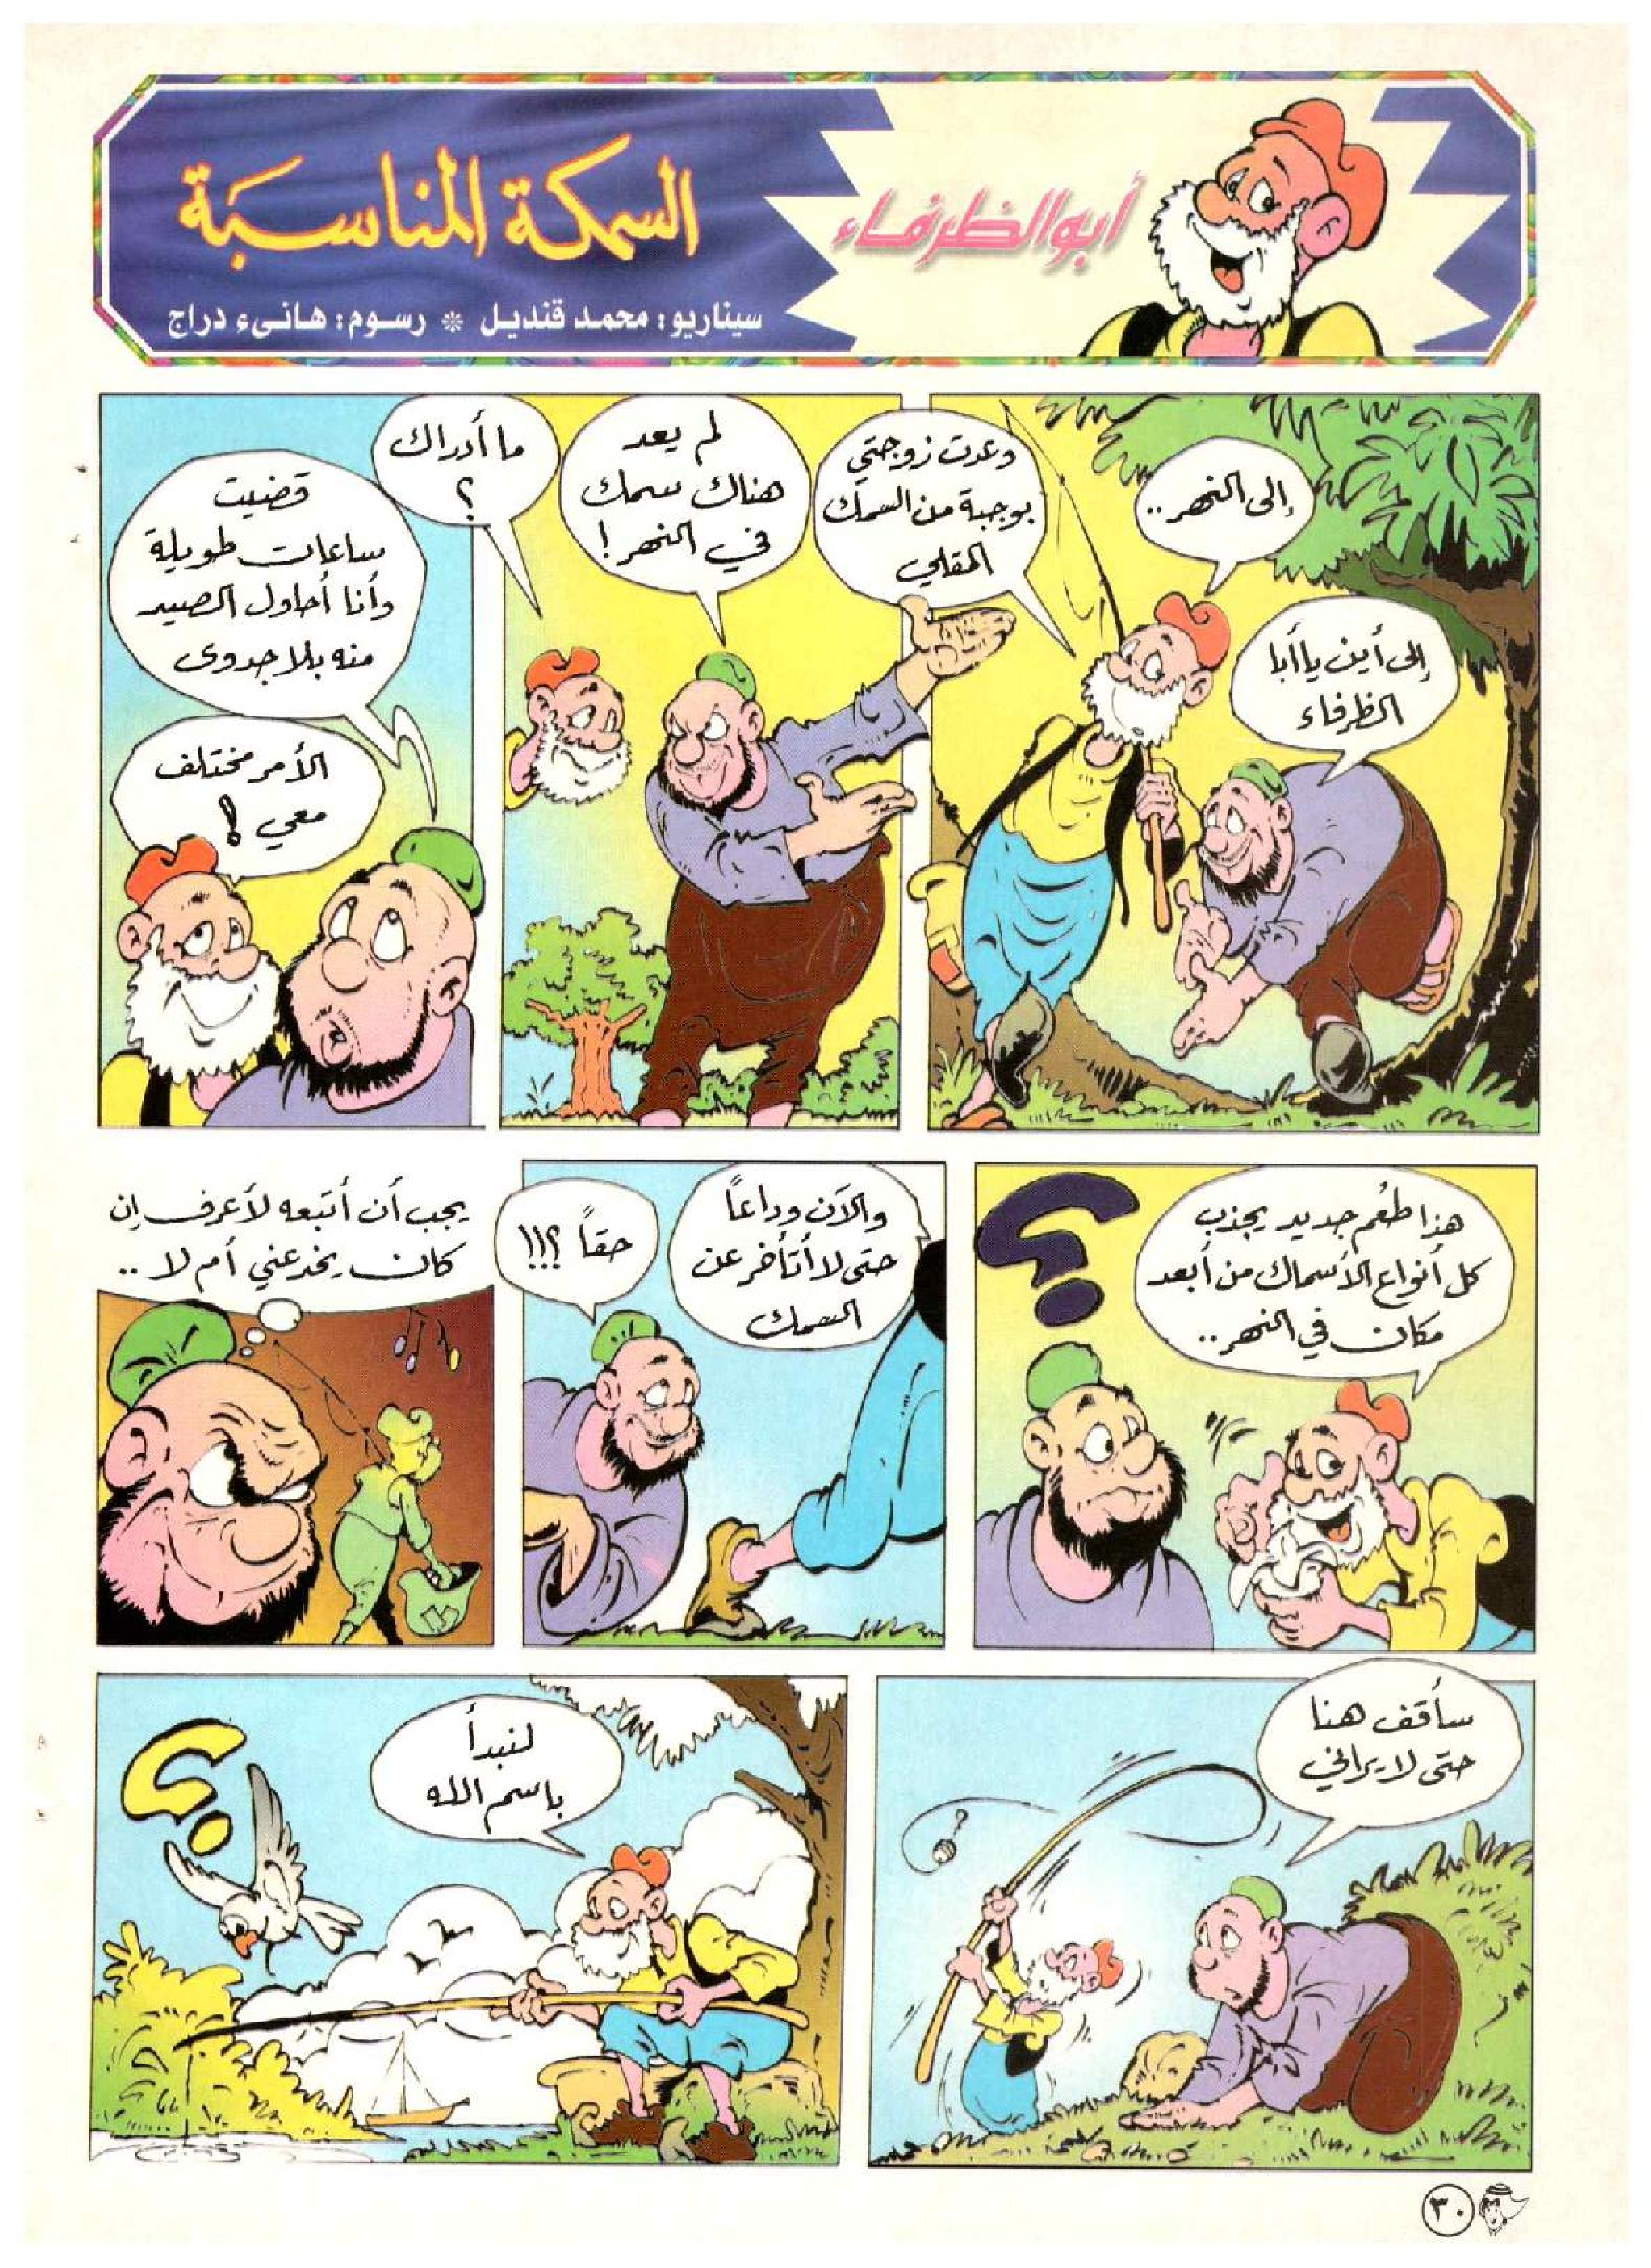 أبو الظرفاء
السمكة المناسبة
سيناريو: محمد قنديل * رسوم: هانىء دراج
إلى أين يا أبا
الظرفاء
إلى النهر..
وعدت زوجتي
بوجبة من السمك
المقلي
لم يعد
هناك سمك
في النهر!
ما أدراك
؟
قضيت
ساعات طويلة
وأنا أحاول الصيد
منه بلا جدوى
الأمر مختلف
معي!
هذا طُعم جديد يجذب
كل أنواع الأسماك من أبعد
مكان في النهر..
؟
والآن وداعاً
حتى لا أتأخر عن
السمك
حقاً ؟!!!
يجب أن أتبعه لأعرف إن
كان يخدعني أم لا ..
سأقف هنا
حتى لا يراني
لنبدأ
باسم الله
؟
٣٠